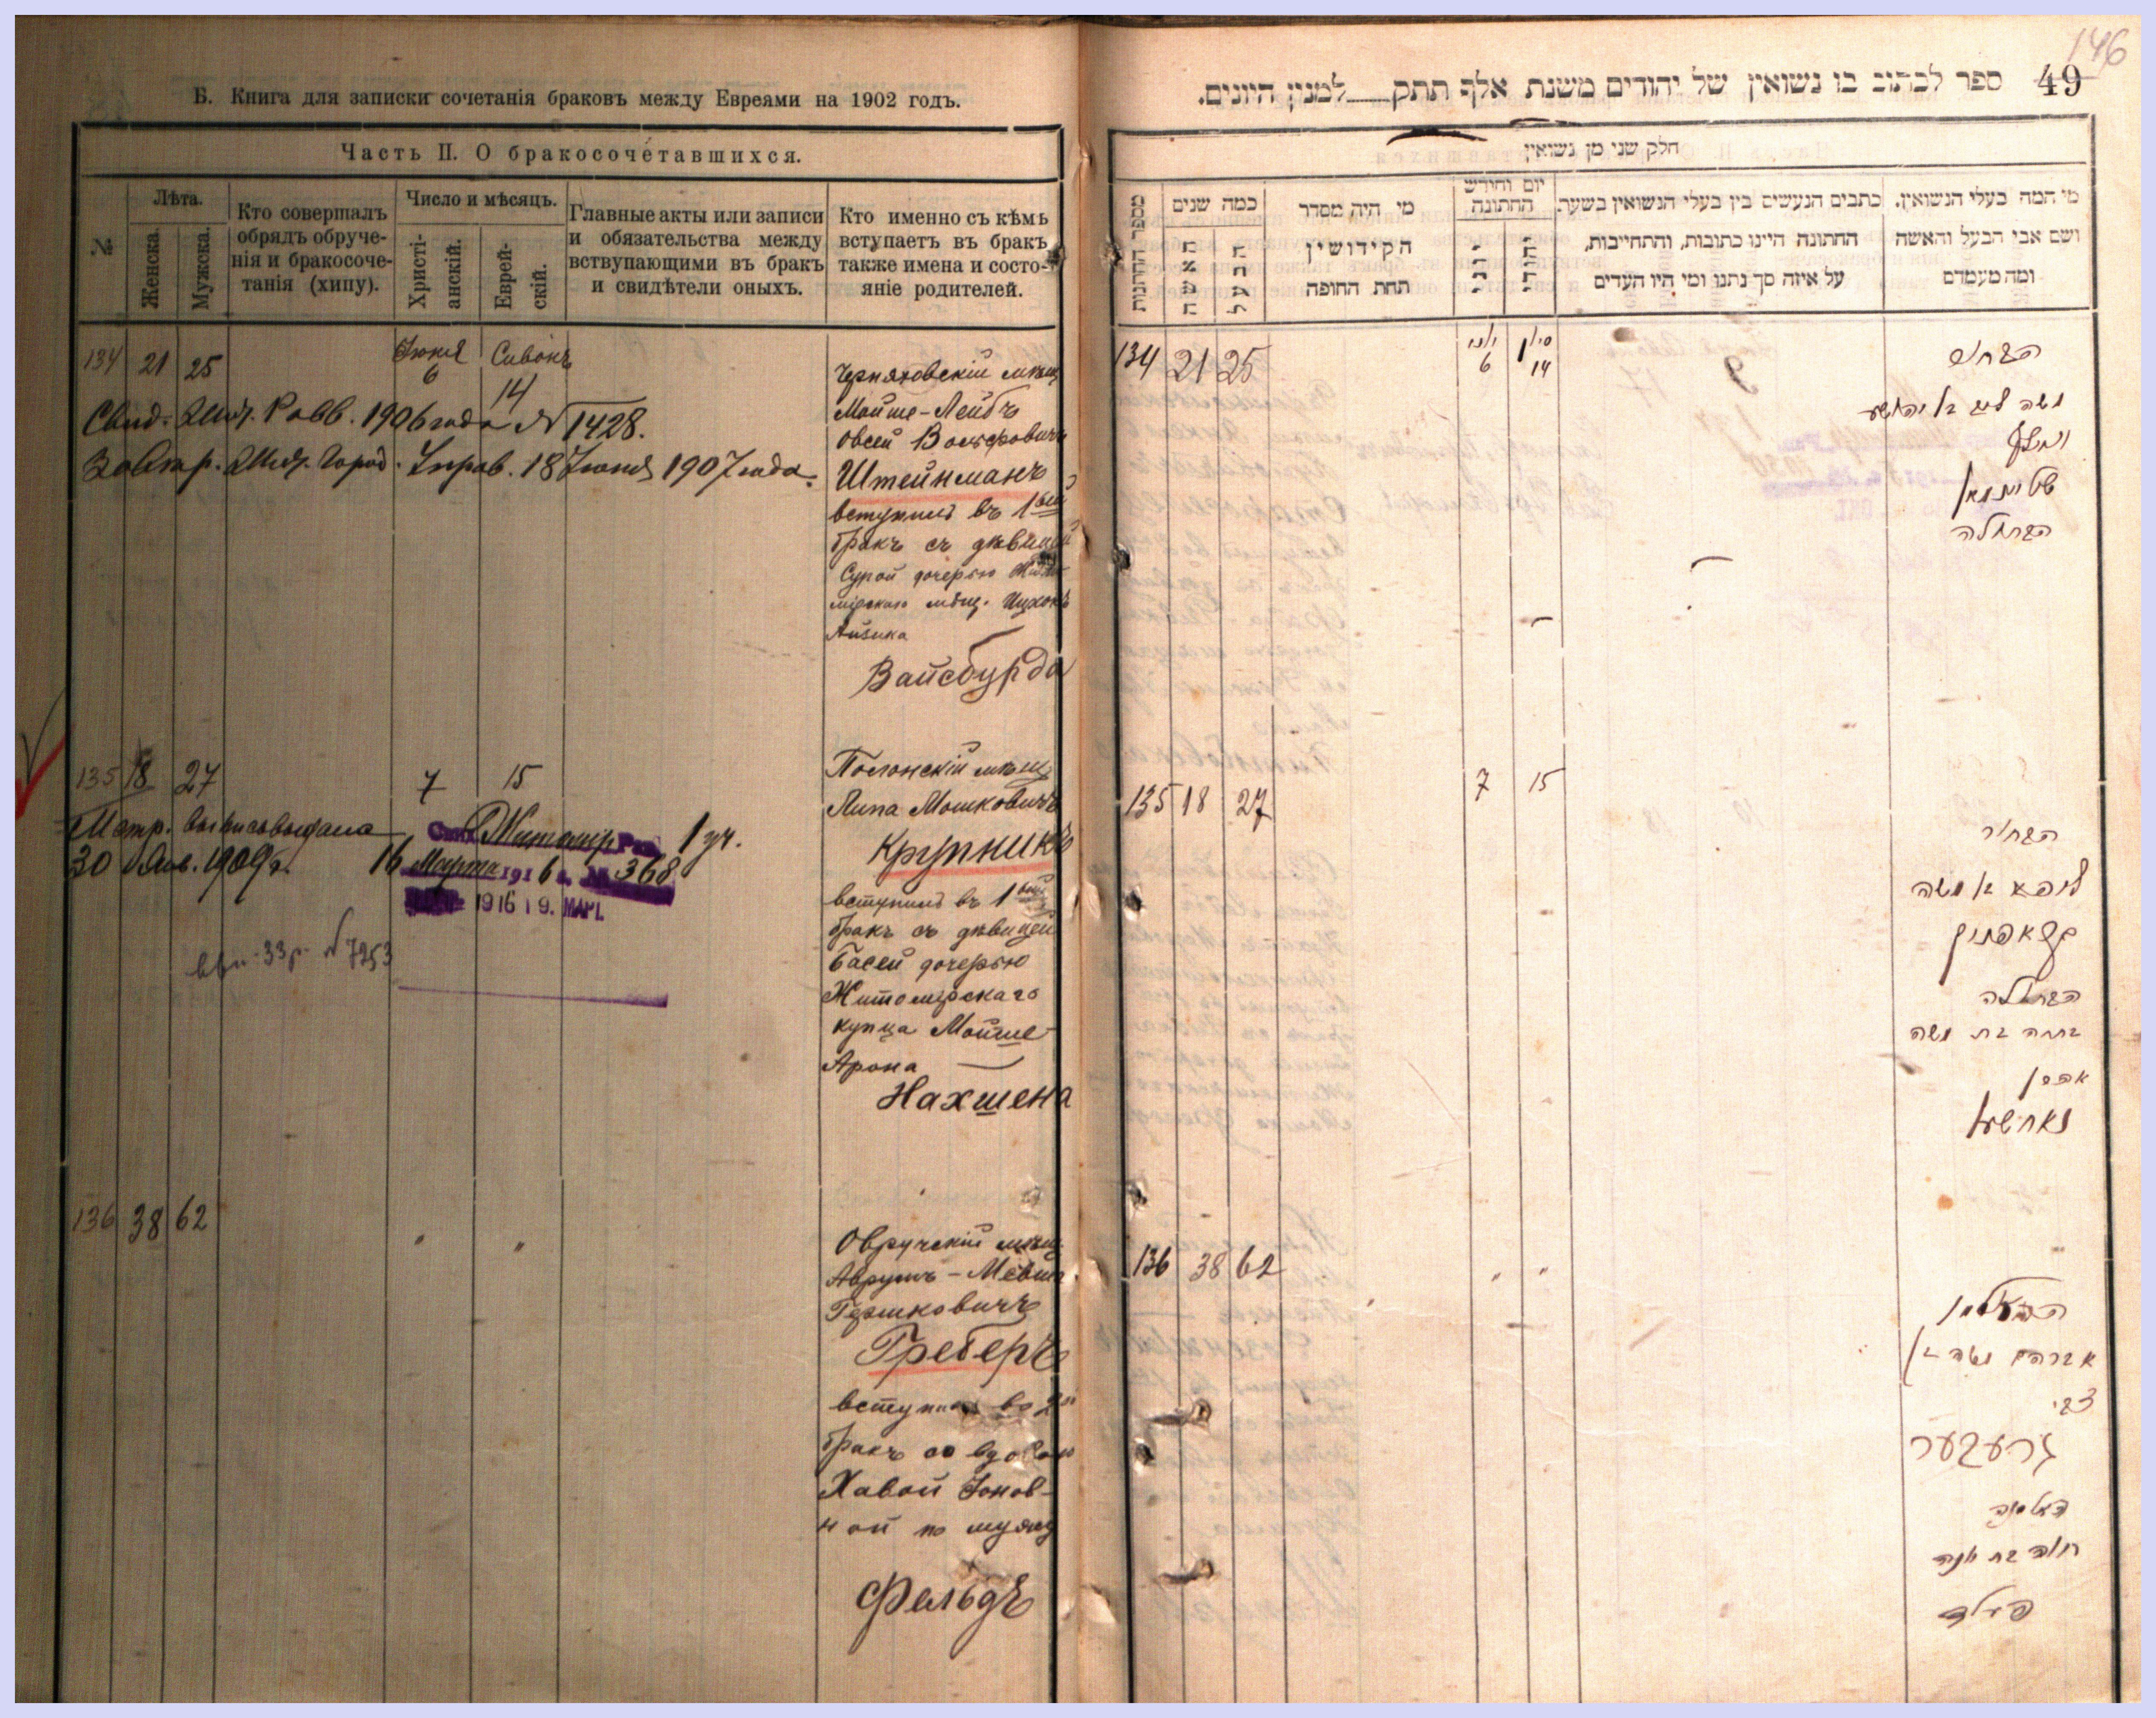 Б. Книга для записки сочетанія браковъ между Евреями на 1902 годъ.
Часть II. О бракосочетавшихся.
№
Лѣта.
Женска.
Мужска.
Кто совершалъ
обрядъ обруче-
нія и бракосоче-
танія (хипу).
Число и мѣсяцъ.
Христі-
анскій.
Еврей-
скій.
Главные акты или записи
и обязательства между
вствупающими въ бракъ
и свидѣтели оныхъ.
Кто именно съ кѣмъ
вступаетъ въ бракъ
также имена и состо-
яніе родителей.
134 21 25
Іюня Сивонъ
6 14
Черняховскій мѣщ
Мойше-Лейбъ
Овсей Вольфовичъ
Штейнманъ
вступилъ въ 1ый
бракъ съ дѣвицей
Сурой дочерью
мірскаго мѣщ. Ицхокъ
Айзика
Вайсбурда
Свид. Жит. Равв. 1906 года № 1428.
Жит. Город. Управ. 18 Іюня 1907 года.
135 18 27
7 15
Полонскій мѣщ
Липа Мошковичъ
Крупникъ
вступилъ въ 1ый
бракъ съ дѣвицей
Басей дочерью
Житомірскаго
купца Мойше-
Арона
Нахшена
Метр. выпись выдана
30 Янв. 1909 г.
Житомір. Рав. 1 уч.
16 Марта 1916 г. № 368
1916 19. МАРТ.
33 р. № 7253
136 38 62
" "
Овручскій мѣщ
Аврумъ-Мевша
Гершковичъ
Греберъ
вступилъ во 2й
бракъ со вдовою
Хавой Іонов-
ной по мужу
Фельдъ
146
49 ספר לכתוב בו נשואין של יהודים משנת אלף תתק למנין היונים.
חלק שני מן נשואין
מספר החתונות
כמה שנים
האשה
הבעל
מי היה מסדר
הקידושין
תחת החופה
יום וחודש
החתונה
יוני
יהודי
כתבים הנעשים בין בעלי הנשואין בשעת
החתונה היינו כתובות, והתחייבות,
על איזה סך נתנו ומי היו העדים
מי המה בעלי הנשואין.
ושם אבי הבעל והאשה
ומה מעמדם
134 21 25
יוני סיון
6 14
הבחור
משה ליב בן יהושע
וואלף
שטיינמאן
הבתולה
135 18 27
7 15
הבחור
ליפא בן משה
קראפניק
הבתולה
בתיה בת משה
אהרן
נאחשען
136 38 62
" "
האלמן
אברהם משה בן
צבי
גרעבער
האלמנה
חוה בת יונה
פעלד